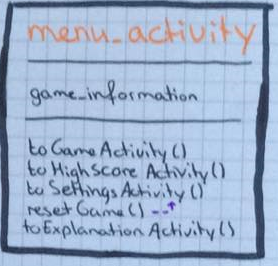 menu_activity
game_information
to Game Activity ()
to High Score Activity ()
to Settings Activity ()
reset Game ()
to Explanation Activity ()